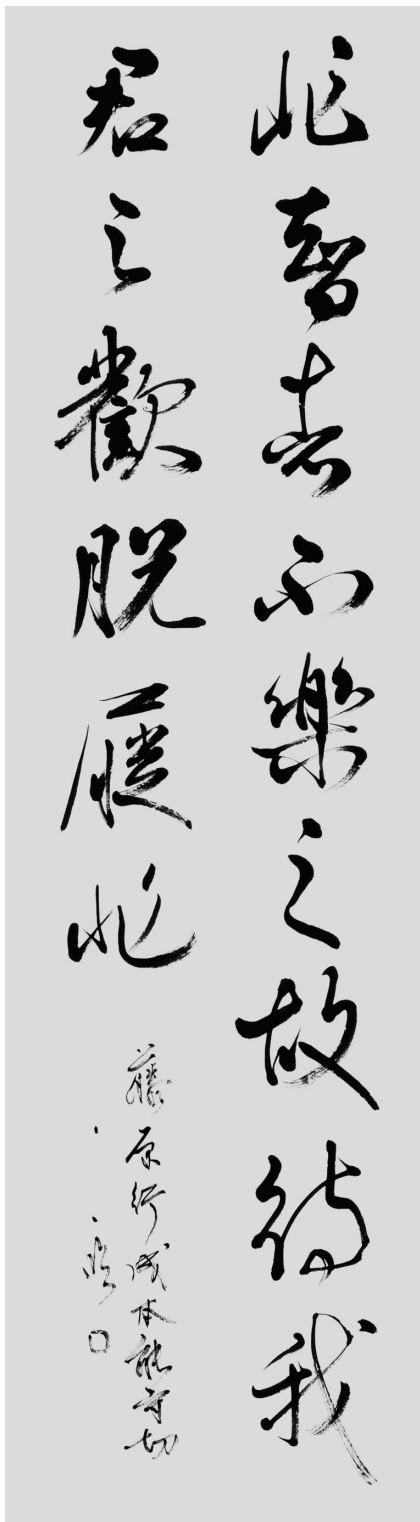 此智者不樂之故待我
君之歡脱屣此
藤原行成本能寺切
臨